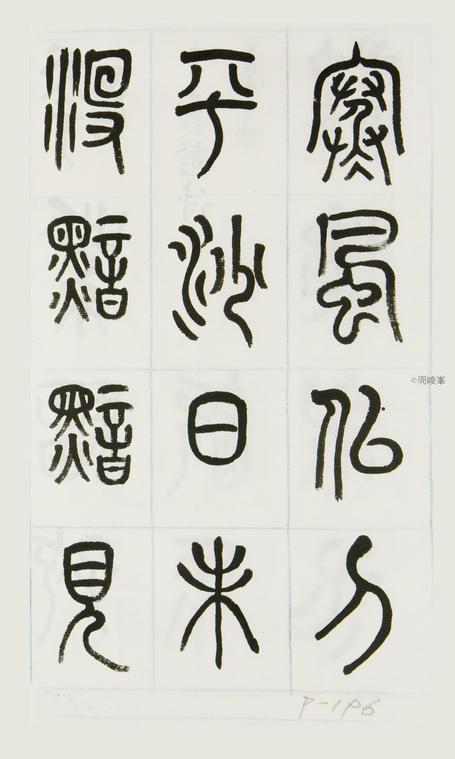 寒風似刀
平沙日未
没黯黯見
©周峻峯
P-196